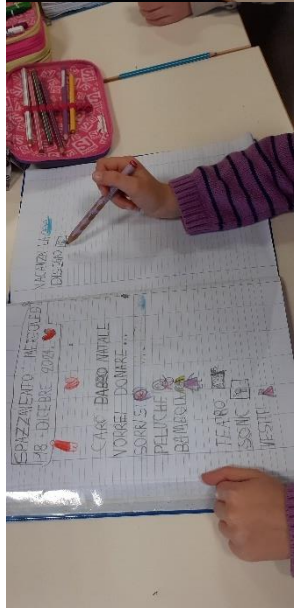 SPAZZAMENTO MERCOLEDÌ
18 DICEBRE 2019
CARO BABBO NATALE
VORREI DONARE...
SORRISO
PELUCHE
BAMBOLA
TEARO
VESTITI
VACANZA